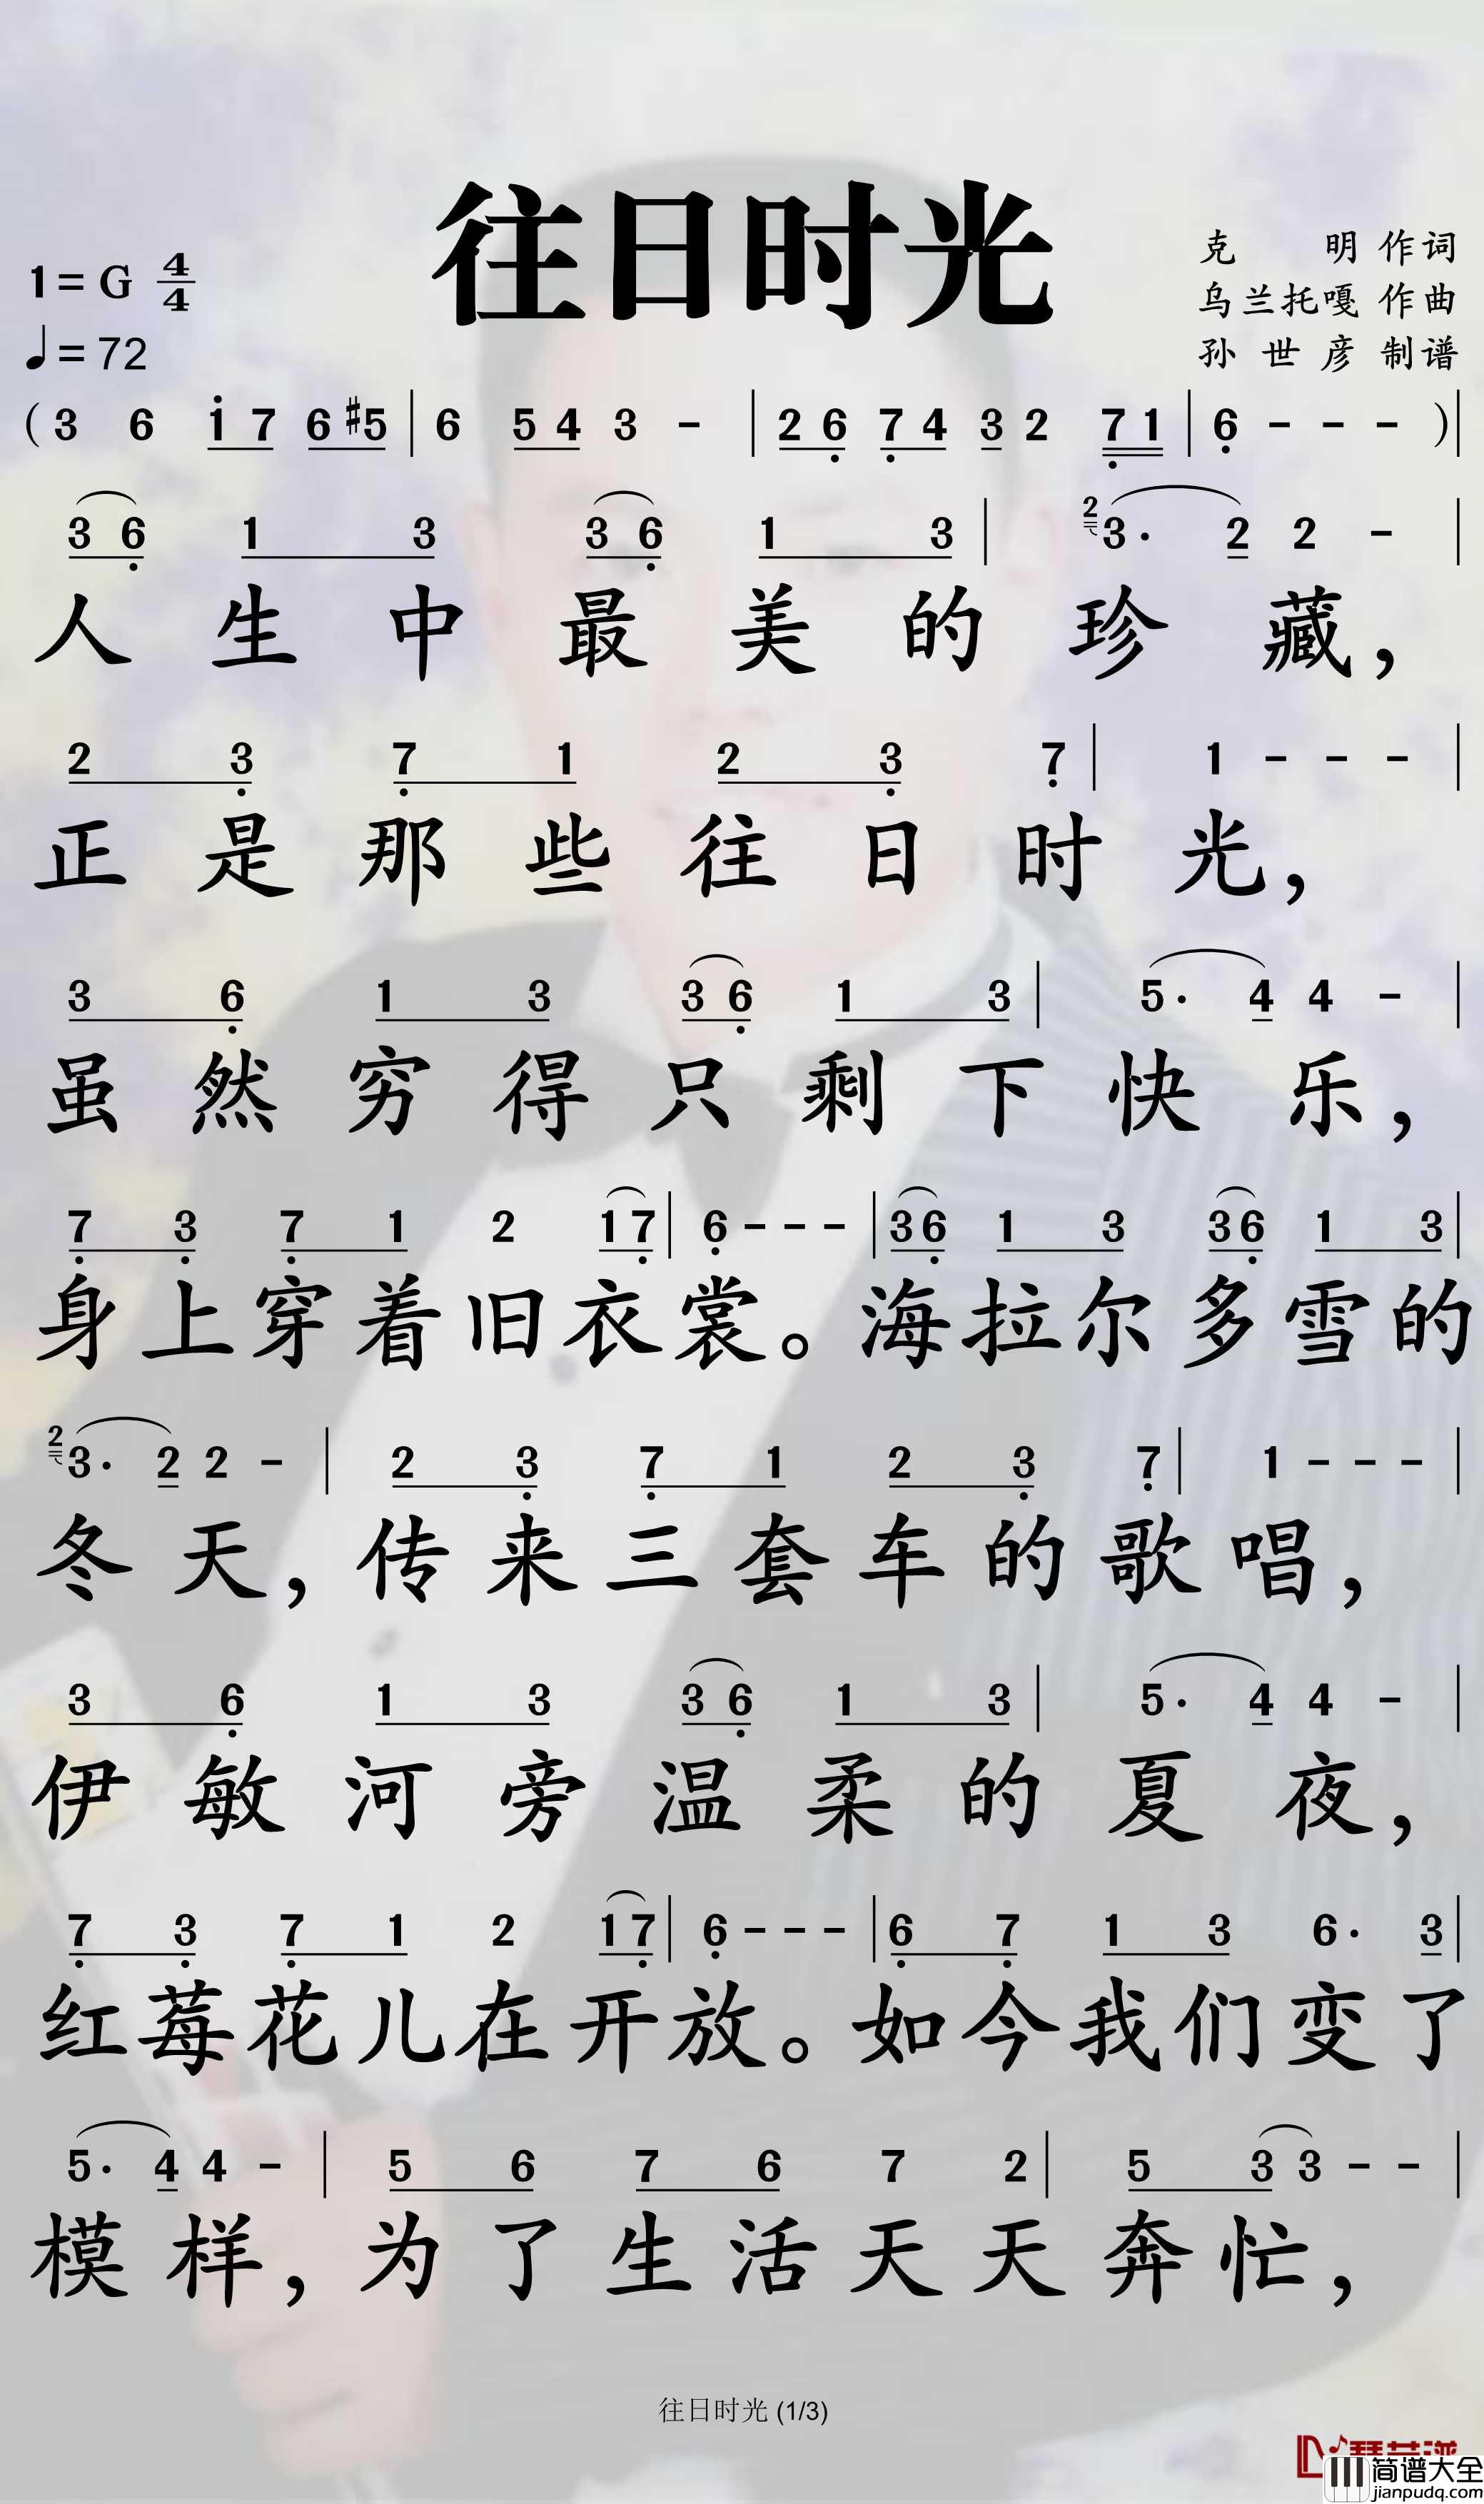 往日时光
克 明 作词
1=G 4/4
乌兰托嘎 作曲
♩=72
孙世彦 制谱
(3 6 1 7 6 #5 | 6 5 4 3 - | 2 6 7 4 3 2 7 1 | 6 - - - )|
3 6 1 3 3 6 1 3 | 2 3· 2 2 - |
人生中最美的珍藏，
2 3 7 1 2 3 7 | 1 - - - |
正是那些往日时光，
3 6 1 3 3 6 1 3 | 5· 4 4 - |
虽然穷得只剩下快乐，
7 3 7 1 2 1 7 | 6 - - - | 3 6 1 3 3 6 1 3 |
身上穿着旧衣裳。海拉尔多雪的
2 3· 2 2 - | 2 3 7 1 2 3 7 | 1 - - - |
冬天，传来三套车的歌唱，
3 6 1 3 3 6 1 3 | 5· 4 4 - |
伊敏河旁温柔的夏夜，
7 3 7 1 2 1 7 | 6 - - - | 6 7 1 3 6· 3 |
红莓花儿在开放。如今我们变了
5· 4 4 - | 5 6 7 6 7 2 | 5 3 3 - - |
模样，为了生活天天奔忙，
往日时光 (1/3)
简谱大全
jianpudq.com